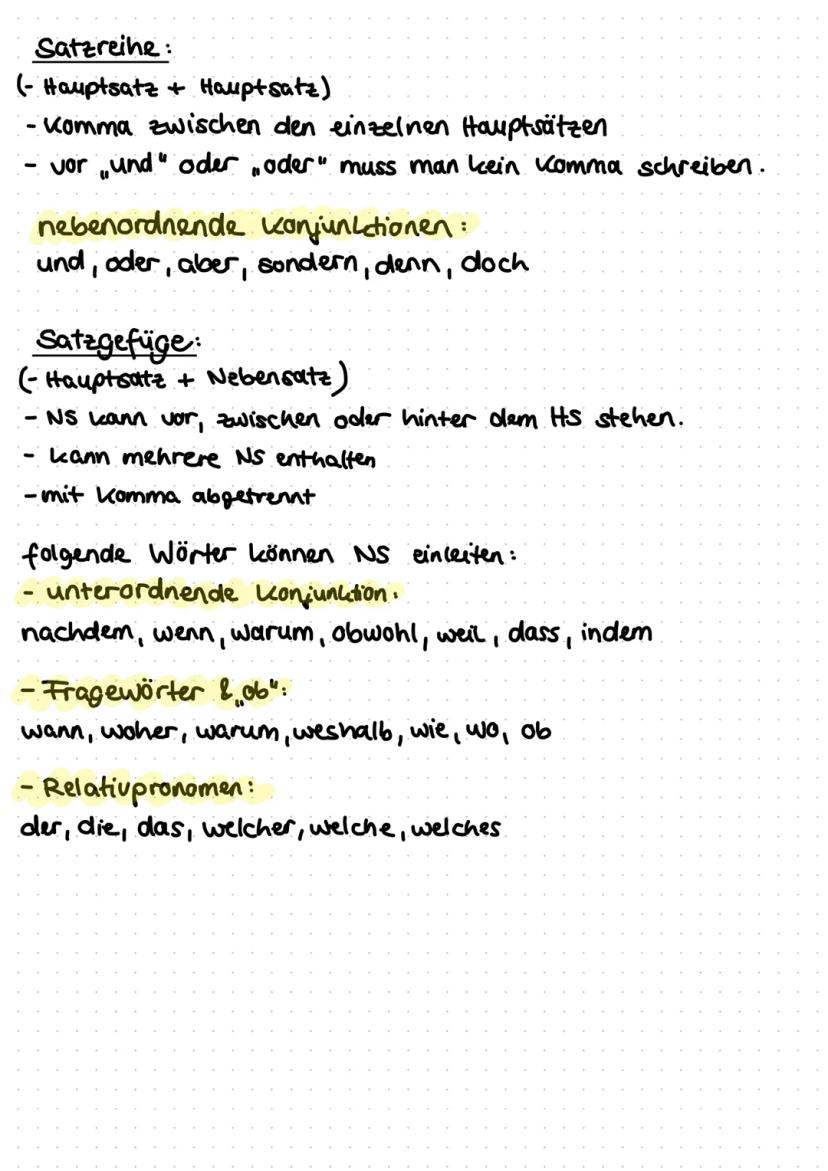 Satzreihe:
(- Hauptsatz + Hauptsatz)
- Komma zwischen den einzelnen Hauptsätzen
- vor „und" oder „oder" muss man kein Komma schreiben.
nebenordnende Konjunktionen:
und, oder, aber, sondern, denn, doch
Satzgefüge:
(- Hauptsatz + Nebensatz)
- NS kann vor, zwischen oder hinter dem HS stehen.
- kann mehrere NS enthalten
- mit Komma abgetrennt
folgende Wörter können NS einleiten:
- unterordnende Konjunktion:
nachdem, wenn, warum, obwohl, weil, dass, indem
- Fragewörter & „ob":
wann, woher, warum, weshalb, wie, wo, ob
- Relativpronomen:
der, die, das, welcher, welche, welches